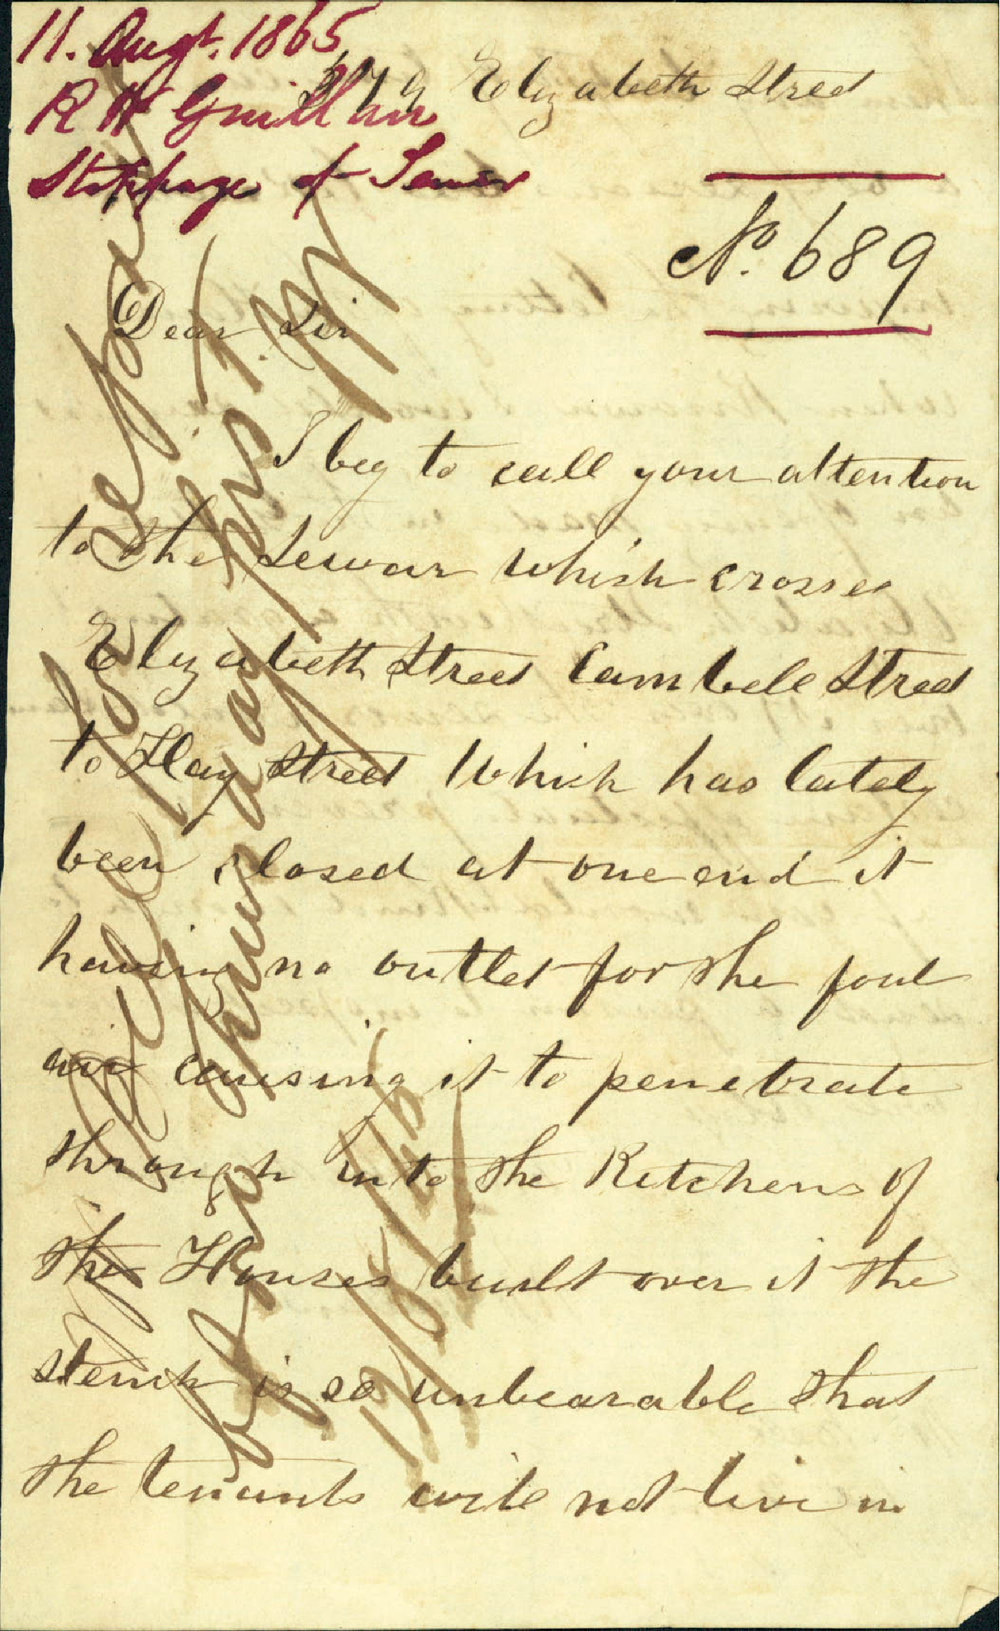 11. Augt. 1865
R W Guillan
Stoppage of Sewer
Elizabeth Street
No. 689
Dear Sir
I beg to call your attention
to the Sewar which crosses
Elizabeth Street Cambele Street
to Hay Street Which has lately
been closed at one end it
having no outlet for the foul
air causing it to penetrate
through into the Kitchens of
the Houses built over it the
stench is so unbearable that
the tenants will not live in
for report
by thursday next